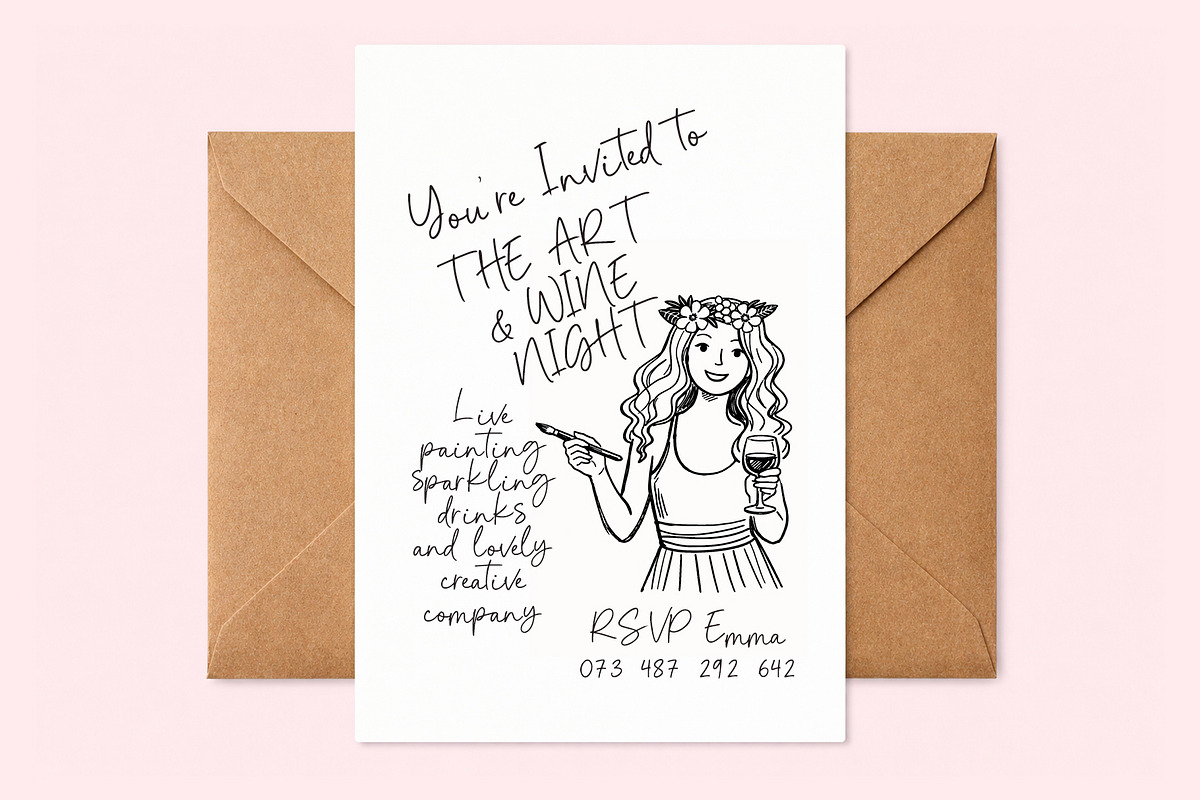 You're Invited to
THE ART
& WINE
NIGHT
Live
painting
sparkling
drinks
and lovely
creative
company
RSVP Emma
073 487 292 642